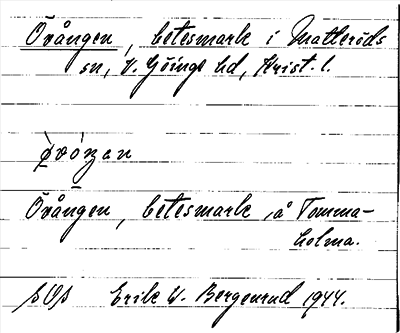 Övången, betesmark i Matteröds
sn, V. Göinge hd, Krist. l.
ø̀vóŋan
Övången, betesmark, å Tomma-
holma.
Erik W. Bergenrud 1944.